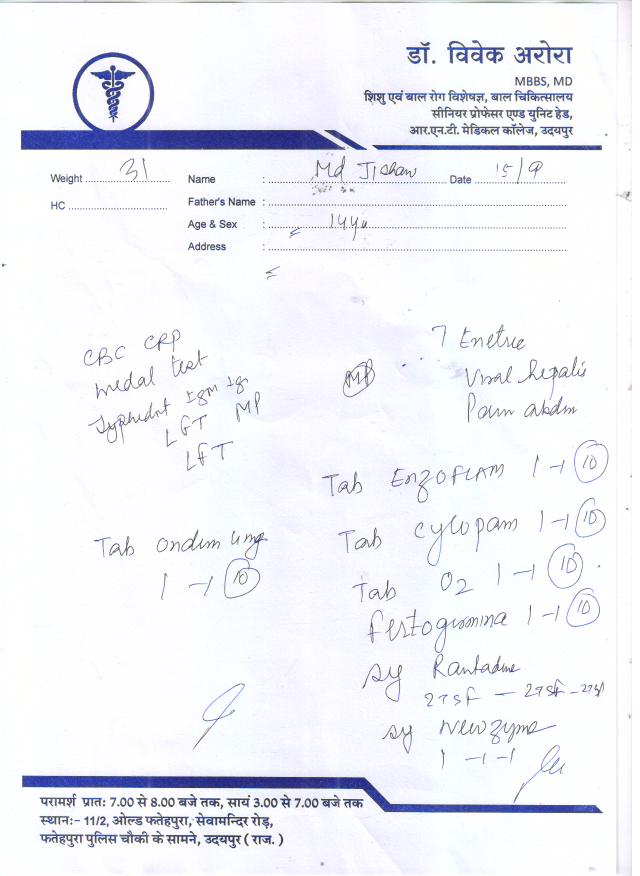 डॉ. विवेक अरोरा
MBBS, MD
शिशु एवं बाल रोग विशेषज्ञ, बाल चिकित्सालय
सीनियर प्रोफेसर एण्ड युनिट हेड,
आर.एन.टी. मेडिकल कॉलेज, उदयपुर
Weight 31 Name : Md Jishan Date 15/9
HC Father's Name :
Age & Sex : 14 Yr
Address :
CBC CRP
medal test
Typhidot Igm Ig
LGT MP
LFT
? Enetric
Viral hepatis
Pain abdm
MP
Tab Enzoflam 1-1 10
Tab Cylopam 1-1 10
Tab O2 1-1 10
1-1 10
Tab ondem 4mg
1-1 10
sy Rantadine
2TSF - 2TSF - 2TSF
sy Newzyme
1-1-1
परामर्श प्रातः 7.00 से 8.00 बजे तक, सायं 3.00 से 7.00 बजे तक
स्थान:- 11/2, ओल्ड फतेहपुरा, सेवामन्दिर रोड़,
फतेहपुरा पुलिस चौकी के सामने, उदयपुर ( राज. )